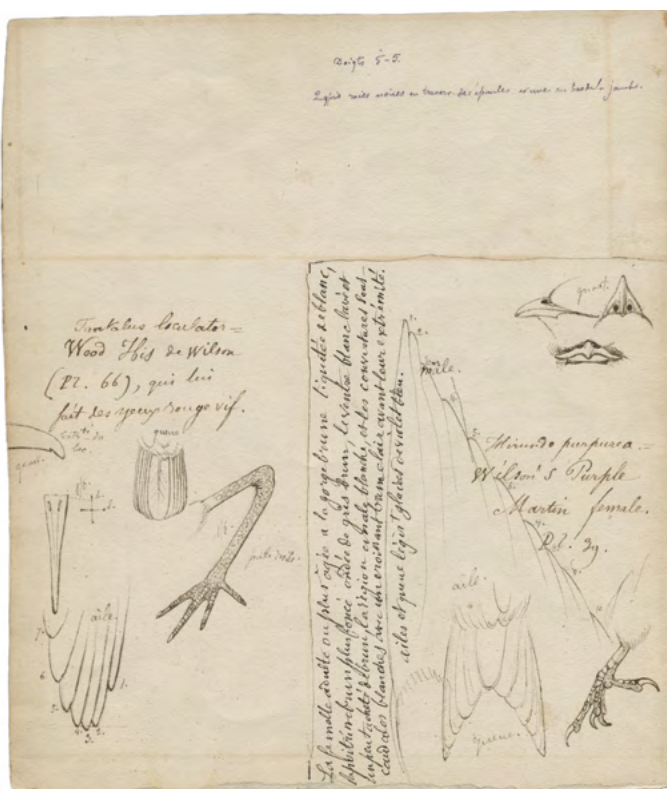 Doigts 5-5.
2 grd raies noires en travers des épaules, et une en bas de la jambe.
Tantalus Loculator =
Wood Ibis de Wilson
(Pl. 66), qui lui
fait des yeux rouge vif.
bec.
queue
patte droite.
aile.
La femelle adulte ou plus âgée a la gorge brune liquidée de blanc,
la poitrine brun plus foncé ondée de gris brun, le ventre blanc lavé et
tacheté de brun, la région anale blanche, et les couvertures sous-
caudales blanches avec un croissant brun clair avant leur extrémité.
ailes et queue légèrt glacées de violet bleu.
1.
2.
mâle.
Hirundo purpurea. =
Wilson's Purple
Martin female.
Pl. 39.
aile.
queue.